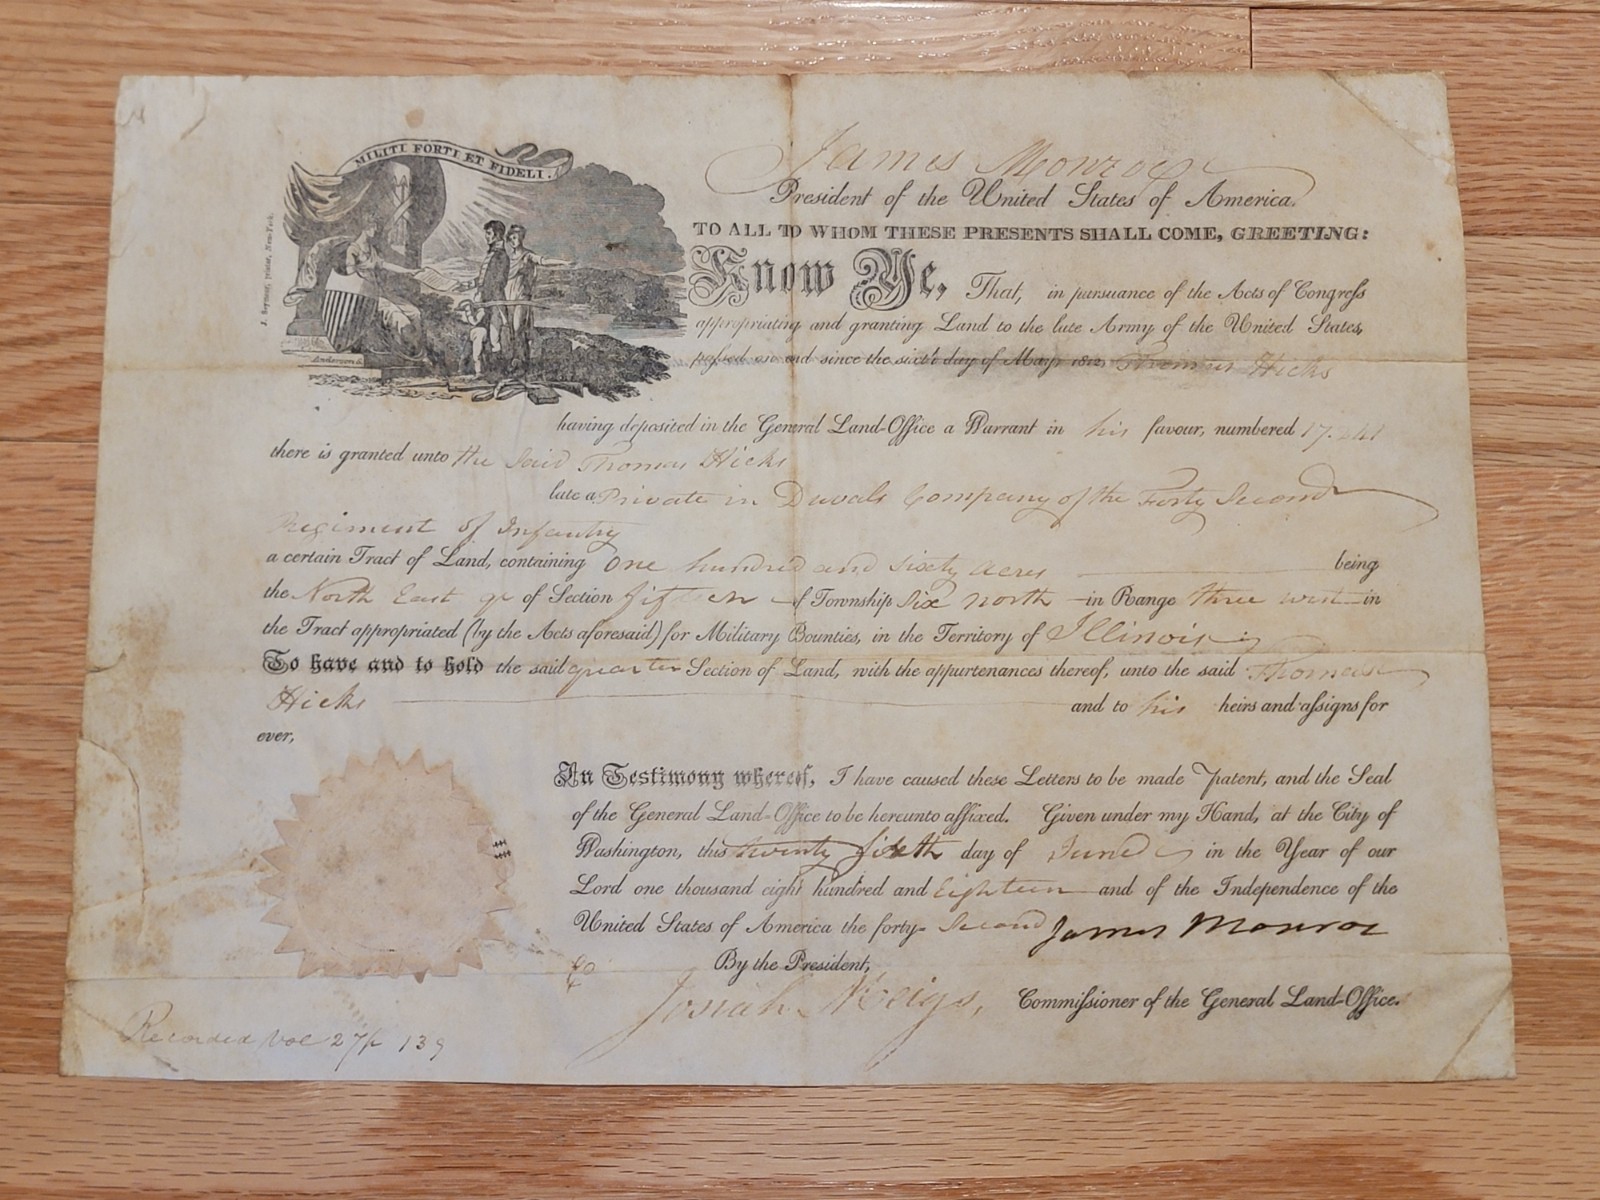 MILITI FORTI ET FIDELI.
J. Seymour, printer, New-York.
Anderson
James Monroe
President of the United States of America.
TO ALL TO WHOM THESE PRESENTS SHALL COME, GREETING:
Know Ye, That, in pursuance of the Acts of Congress
appropriating and granting Land to the late Army of the United States,
passed on and since the sixth day of May, 1812, Thomas Hicks
having deposited in the General Land-Office a Warrant in his favour, numbered 17.
there is granted unto the said Thomas Hicks
late a Private in Duvals Company of the Forty Second
Regiment of Infantry
a certain Tract of Land, containing One hundred and sixty acres being
the North East qr of Section fifteen of Township Six north in Range three west in
the Tract appropriated (by the Acts aforesaid) for Military Bounties, in the Territory of Illinois
To have and to hold the said quarter Section of Land, with the appurtenances thereof, unto the said Thomas
Hicks and to his heirs and assigns for
ever,
In Testimony whereof, I have caused these Letters to be made Patent, and the Seal
of the General Land-Office to be hereunto affixed. Given under my Hand, at the City of
Washington, this twenty day of June in the Year of our
Lord one thousand eight hundred and Eighteen and of the Independence of the
United States of America the forty-Second James Monroe
By the President,
Josiah Meigs, Commissioner of the General Land-Office.
Recorded Vol 27 p 139